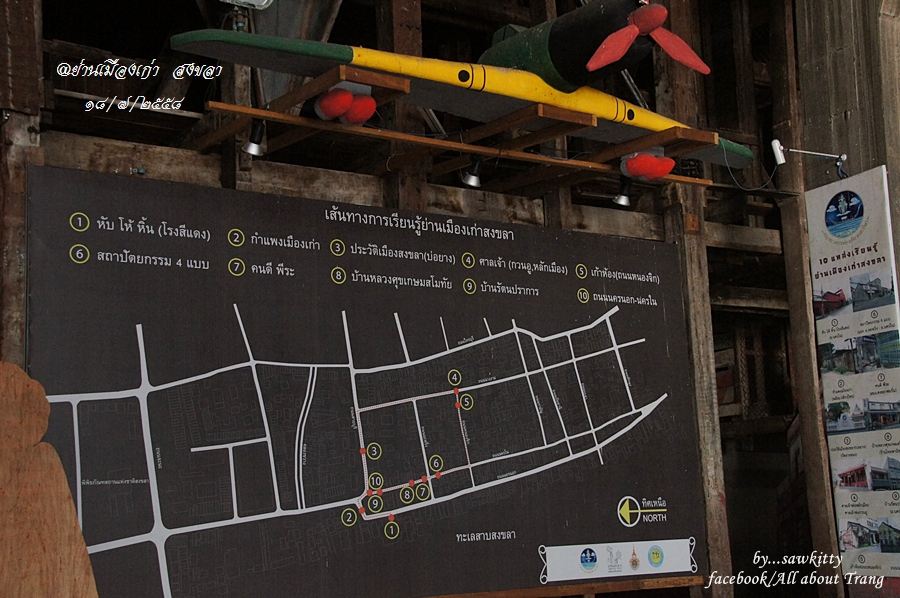 @ย่านเมืองเก่า สงขลา
๑๘/๗/๒๕๕๘
เส้นทางการเรียนรู้ย่านเมืองเก่าสงขลา
1 หับ โห้ หิ้น (โรงสีแดง)
2 กำแพงเมืองเก่า
3 ประวัติเมืองสงขลา(บ่อยาง)
4 ศาลเจ้า (กวนอู,หลักเมือง)
5 เก้าห้อง(ถนนหนองจิก)
6 สถาปัตยกรรม 4 แบบ
7 คนดี พีระ
8 บ้านหลวงสุขเกษมสโมทัย
9 บ้านรัตนปราการ
10 ถนนนครนอก-นครใน
4
5
3
6
10
8
7
9
2
1
พิพิธภัณฑสถานแห่งชาติสงขลา
ทะเลสาบสงขลา
ทิศเหนือ
NORTH
10 แหล่งเรียนรู้
ย่านเมืองเก่าสงขลา
by...sawkitty
facebook/All about Trang